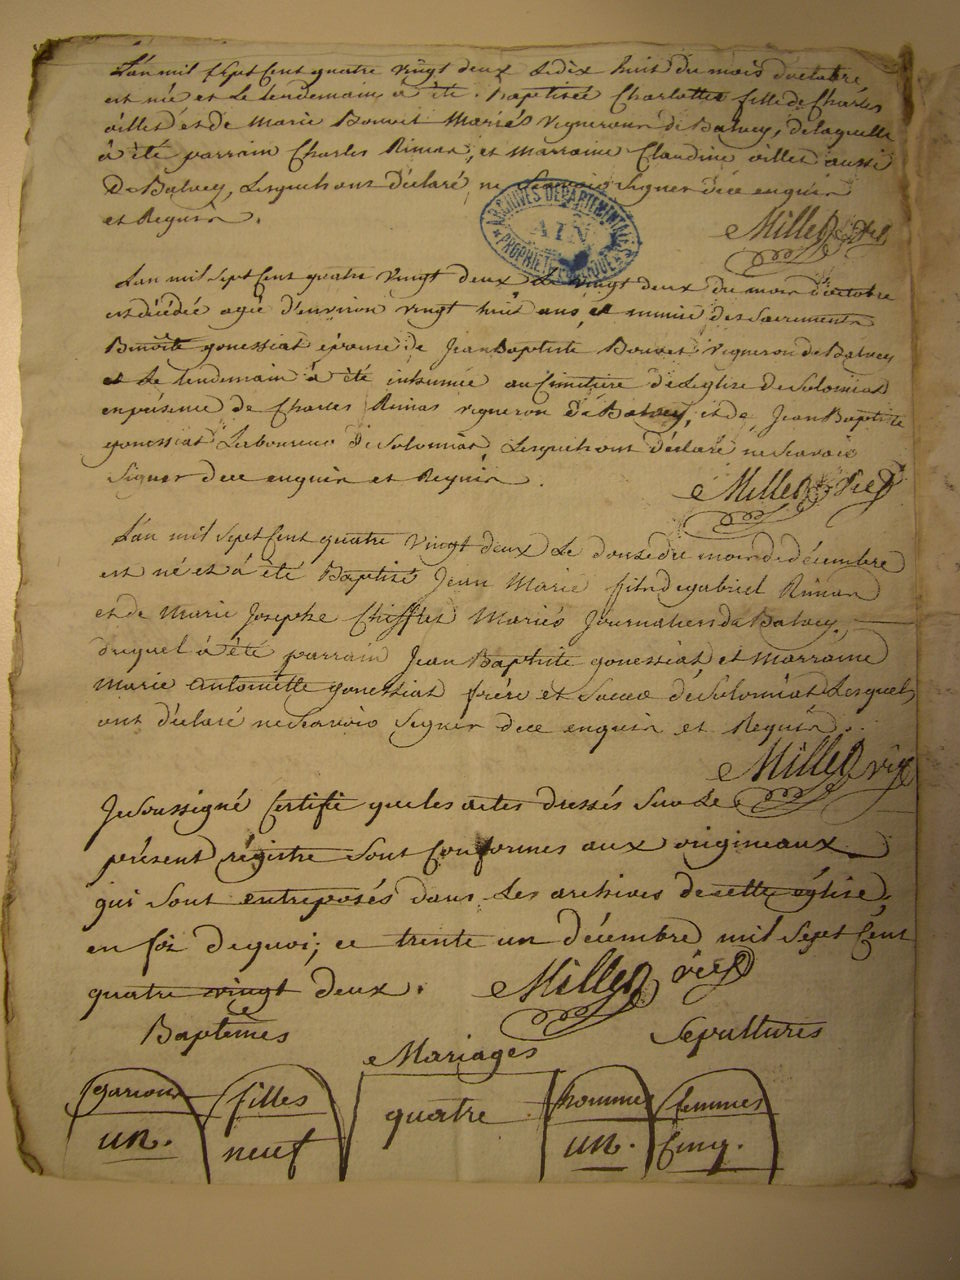 L'an mil sept Cent quatre vingt deux Le dix huit du mois doctobre
est née et Le lendemain a été Baptisée Charlotte fille de Charles
oillet et de Marie Bouvet Mariés vignerons de Balvey, de laquelle
à été parrain Charles Rimas, et Marraine Claudine oillet aussi
De Balvey, Lesquels ont déclaré ne Scavoir Signer dece enquis
et Requis.
Millen
ARCHIVES DÉPARTEMENTALES
AIN
PROPRIÉTÉ PUBLIQUE
L'an mil sept Cent quatre vingt deux Le vingt deux du mois doctobre
est décédée agée d'environ vingt huit ans, et munie des Sacrements
Benoite gonessiat épouse de Jean Baptiste Bouvet vigneron de Balvey
et Le lendemain à été inhumée au Cimitiere de L'eglise de Solomiat
en présence de Charles Rimas vigneron de Balvey, et de Jean Baptiste
gonessiat Laboureur de Solomiat, Lesquels ont déclaré ne Scavoir
Signer dece enquis et Requis.
Millen
L'an mil sept Cent quatre vingt deux Le douze du mois de décembre
est né et à été Baptisé Jean Marie fils de gabriel Rimas
et de Marie Josephe Chifflet Mariés Journaliers de Balvey,
duquel à été parrain Jean Baptiste gonessiat et Marraine
Marie Antoinette gonessiat frére et Soeur de Solomiat Lesquels
ont déclaré ne Scavoir Signer dece enquis et Requis.
Millen
Je Soussigné Certifie que les actes dressés Sur Le
présent régistre Sont Conformes aux origineaux
qui Sont entreposés dans Les archives de cette église,
en foi de quoi; ce trente un décembre mil Sept Cent
quatre vingt deux. Millen
Baptêmes Mariages Sepultures
garçon filles quatre homme femmes
un. neuf un. Cinq.